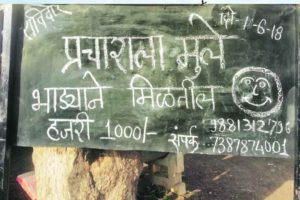 शनिवार
दि- 11-6-18
प्रचाराला मुले
भाड्याने मिळतील
हजरी 1000/- संपर्क 9881312796
7387874001